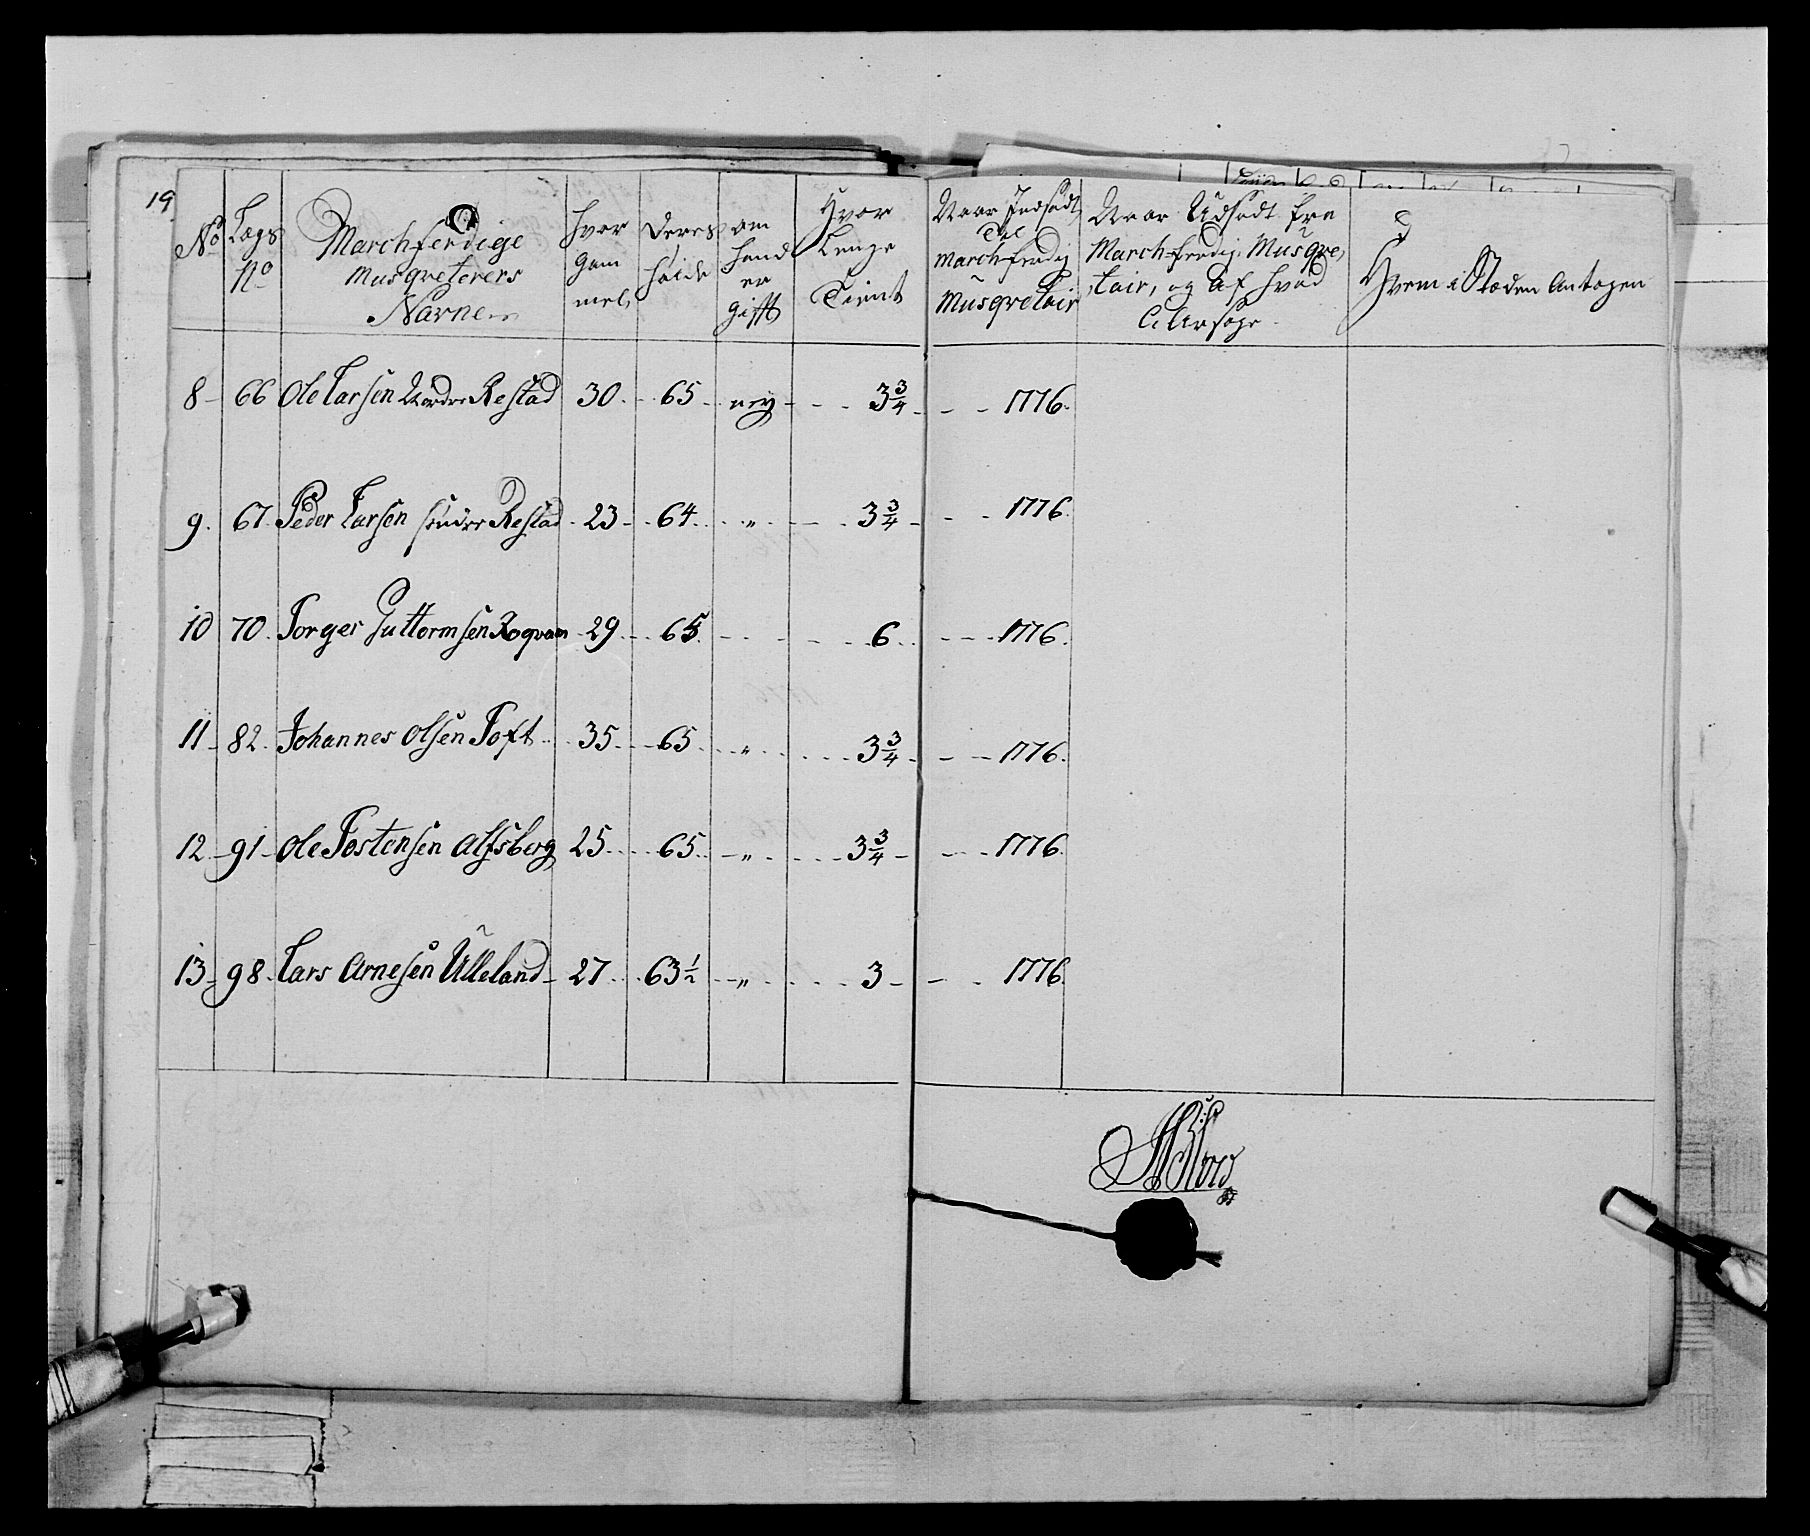 19.
No
Lags
No
Marchferdige
Musqveterers
Nafne
hvor
gam
mel,
Deres
höide
om
hand
er
gifft
Hvor
Lenge
Tient
Naar Indsadt
til
marchferdig
Musqvetair
Naar Udsadt fra
Marchferdig Musqve,
tair, og af hvad
Aarsage
Hvem i Stæden Antagen
8 - 66 Ole Larsen Nordre Restad 30 - 65 - ney - - - 3 3/4 - - - 1776.
9. 67. Peder Larsen søndre Restad - 23 - 64 - „ - - - 3 3/4 - - - 1776.
10 70. Torger Guttormsen Rogvam - 29 - 65 - - - 6 - - - 1776.
11 - 82. Johannes Olsen Toft - 35 - 65 - „ - - - 3 3/4 - - - 1776.
12 - 91 - Ole Tostensen Alfsberg 25 - 65 - „ - - - 3 3/4 - - - 1776.
13 - 98. Lars Arnesen Ulleland - 27 - 63 1/2 - „ - - - 3 - - - 1776.